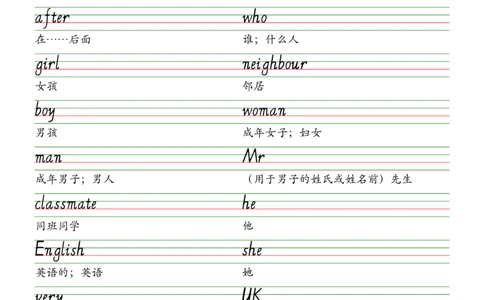 after who
在……后面 谁；什么人
girl neighbour
女孩 邻居
boy woman
男孩 成年女子；妇女
man Mr
成年男子；男人 （用于男子的姓氏或姓名前）先生
classmate he
同班同学 他
English she
英语的；英语 她
very UK